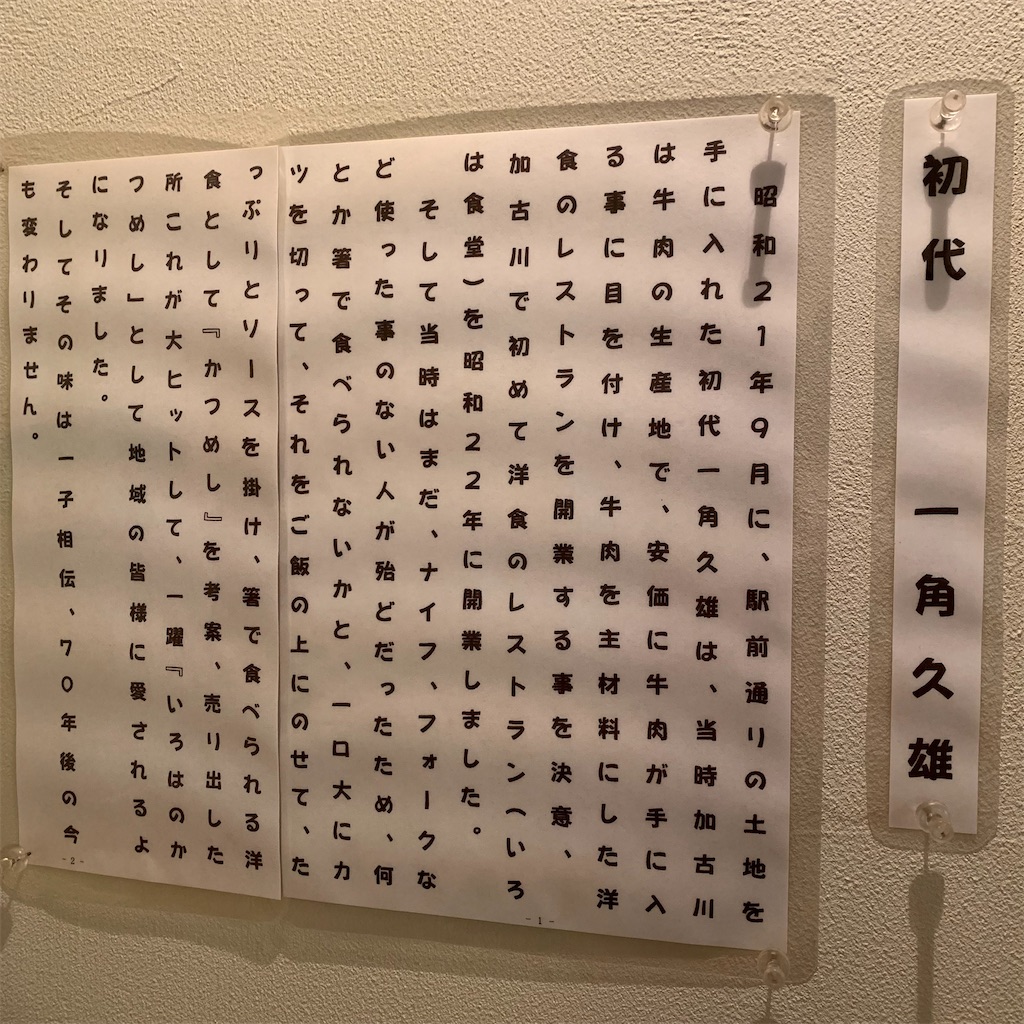 初代　一角久雄
昭和21年9月に、駅前通りの土地を
手に入れた初代一角久雄は、当時加古川
は牛肉の生産地で、安価に牛肉が手に入
る事に目を付け、牛肉を主材料にした洋
食のレストランを開業する事を決意、
加古川で初めて洋食のレストラン(いろ
は食堂)を昭和22年に開業しました。
そして当時はまだ、ナイフ、フォークな
ど使った事のない人が殆どだったため、何
とか箸で食べられないかと、一口大にカ
ツを切って、それをご飯の上にのせて、た
- 1 -
っぷりとソースを掛け、箸で食べられる洋
食として『かつめし』を考案、売り出した
所これが大ヒットして、一躍『いろはのか
つめし」として地域の皆様に愛されるよ
になりました。
そしてその味は一子相伝、70年後の今
も変わりません。
- 2 -